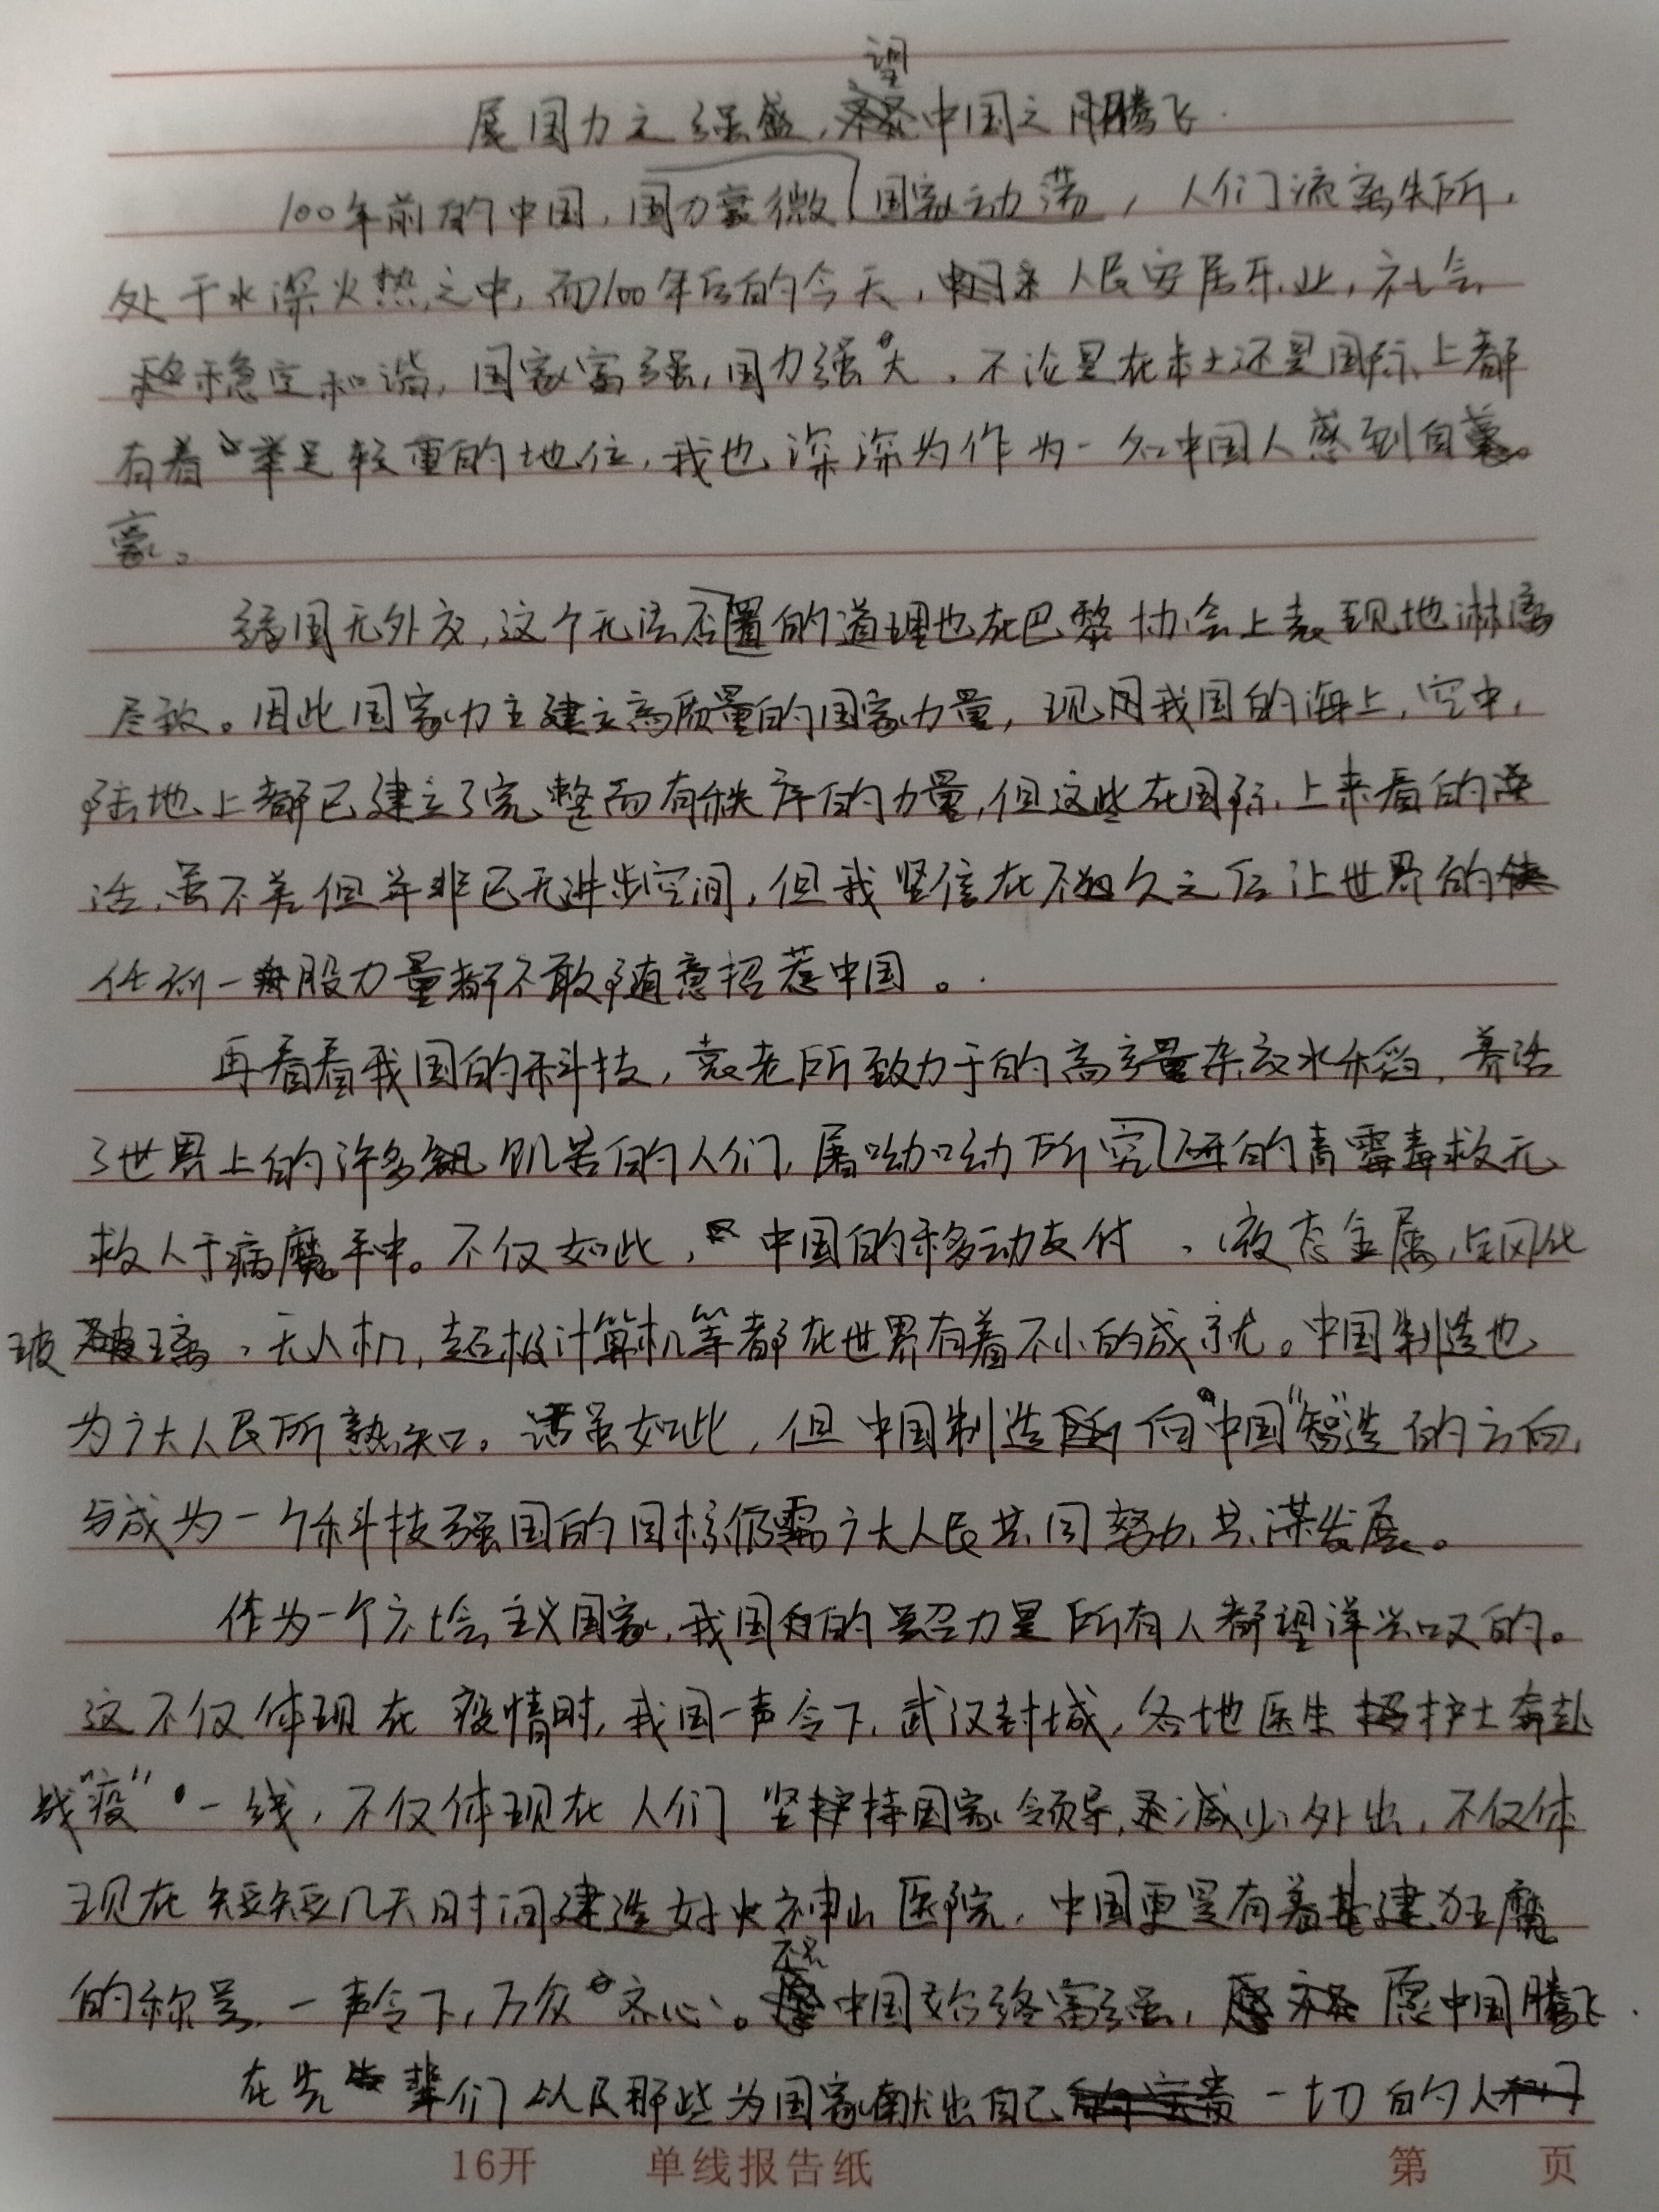 展国力之强盛，望中国之腾飞
100年前的中国，国力衰微国家动荡，人们流离失所，
处于水深火热之中，而100年后的今天，人民安居乐业，社会
稳定和谐，国家富强，国力强大。不论是在本土还是国际上都
有着举足轻重的地位，我也深深为作为一名中国人感到自
豪。
弱国无外交，这个无法否置的道理也在巴黎协会上表现地淋漓
尽致。因此国家力主建立高质量的国家力量，现用我国的海上，空中，
陆地上都已建立了完整而有秩序的力量，但这些在国际上来看的
话，虽不差但并非已无进步空间，但我坚信在不久之后让世界的
任何一股力量都不敢随意招惹中国。
再看看我国的科技，袁老所致力于的高产量杂交水稻，养活
了世界上的许多饥苦的人们，屠呦呦所究研的青霉毒救无
救人于病魔手中。不仅如此，中国的移动支付、液态金属，钢化
玻璃、无人机，超极计算机等都在世界有着不小的成就。中国制造也
为广大人民所熟知。话虽如此，但中国制造向中国"智"造的方向，
与成为一个科技强国的目标仍需广大人民共同努力，共谋发展。
作为一个社会主义国家，我国的号召力是所有人都望洋兴叹的。
这不仅体现在疫情时，我国一声令下，武汉封城，各地医生护士奔赴
战"疫"一线，不仅体现在人们坚持国家领导，减少外出，不仅体
现在短短几天时间建造好火神山医院，中国更是有着基建狂魔
的称号，一声令下，万众齐心。中国始终富强，愿中国腾飞.
在先辈们以及那些为国家献出自己一切的人
16开 单线报告纸 第 页